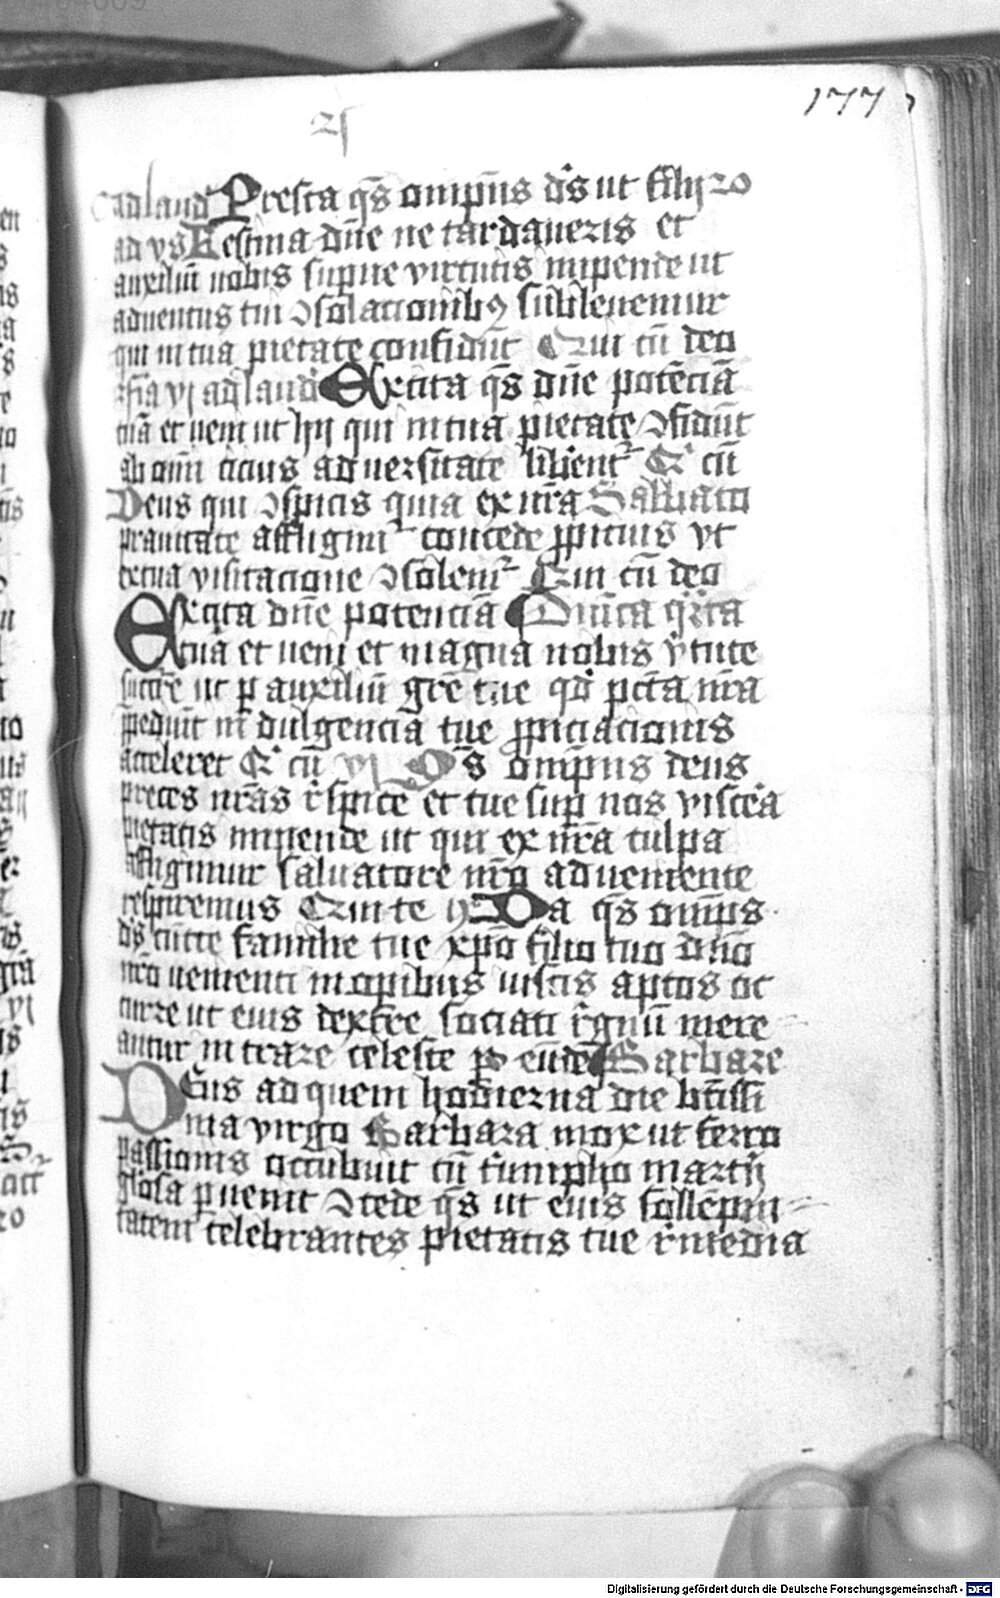 177
ad laud Presta qs omps ds ut filij
ad vs Festina dne ne tardaueris et
auxiliu nobis supne virtutis inpende ut
aduentus tui ɔsolacionibꝯ subleuemur
qui in tua pietate confidut Qui cu deo
fia vi ad laud Excita qs dne potēciā
tuā et ueni ut hij qui in tua pietate ɔfidūt
ab omi cicius aduersitate libent Q cū
Deus qui ɔspicis quia ex nra Sabbato
prauitate affligimr concede ppicius vt
ex tua visitacione ɔsolemr Qui cū deo
Excita dne potenciā Dnica qrta
tuā et ueni et magna nobis vtute
succre ut p auxiliū gre tue qd pcta nra
pediūt indulgencia tue ppiciacionis
acceleret Q cū vi Os omps deus
preces nras rspice et tue sup nos viscera
pietatis inpende ut qui ex nra culpa
affligimur saluatore nro adueniente
respiremus Qui te Da qs omps
ds cūcte familie tue xpo filio tuo dno
nro uenienti in opibus iustis aptos oc
curre ut eius dextre sociati rgnū mere
antur intrare celeste p eūde Barbare
Deus ad quem hodierna die btissi
ma virgo Barbara mox ut ferro
passionis occubuit cū triumpho martij
gliosa puenit ɔcede qs ut eius sollēpni
tatem celebrantes pietatis tue rmedia
Digitalisierung gefördert durch die Deutsche Forschungsgemeinschaft - DFG